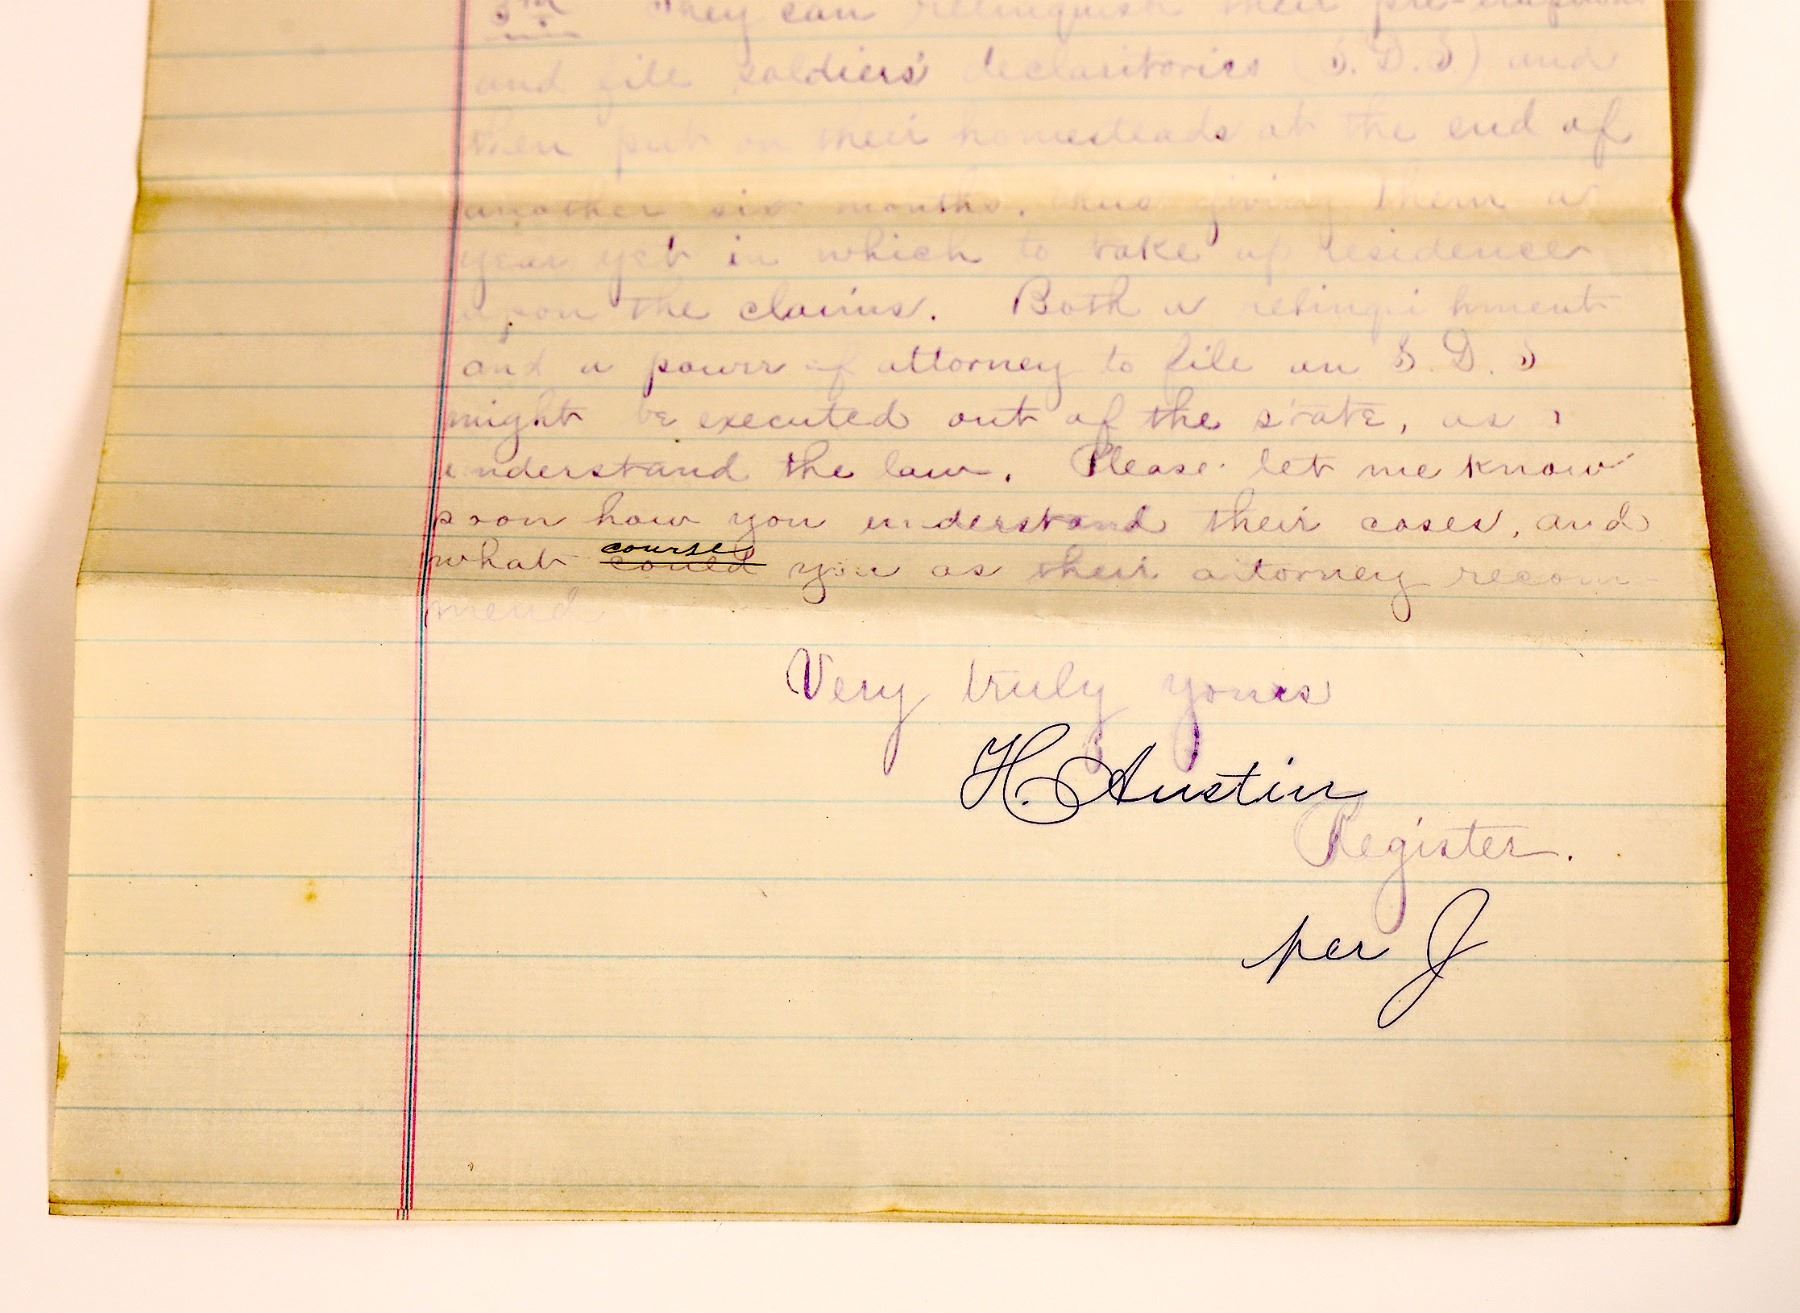 3rd They can relinquish their pre-emptions
and file soldiers' declaritories (S.D.S) and
then put on their homesteads at the end of
another six months, thus giving them a
year yet in which to take up residence
upon the claims. Both a relinquishment
and a power of attorney to file an S.D.S
might be executed out of the state, as I
understand the law. Please let me know
soon how you understand their cases, and
course
what could you as their attorney recom-
mend
Very truly yours
H. Austin
Register.
per J